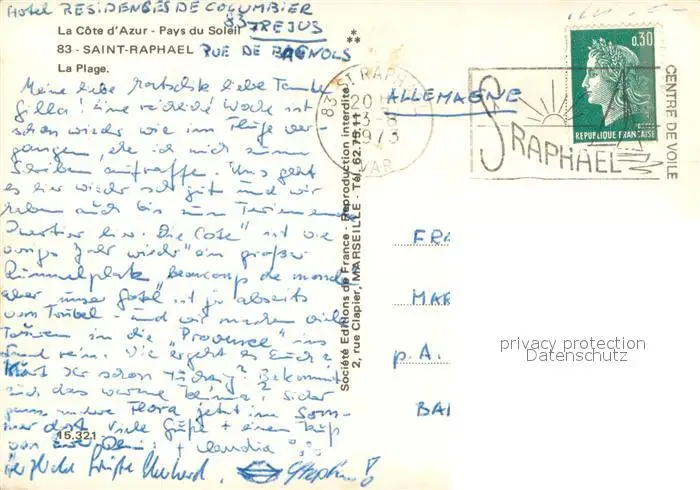 Hotel RESIDENCES DE COLUMBIER
83 FREJUS
La Côte d'Azur - Pays du Soleil
83 - SAINT-RAPHAEL RUE DE BAGNOLS
La Plage.
Meine liebe liebe Tante
Gilla! Eine Woche ist
schon wieder wie im Fluge ver-
gangen, ehe ich mich zum
Schreiben aufraffe. Uns geht
es hier wieder sehr gut und wir
haben auch bis zum
Quartier hier. Die Cote" ist wie
voriges Jahr wieder ein großer
Rummelplatz, beaucoup de monde
aber "unser Hotel" ist ja abseits
vom Trubel - und wir machen viele
Touren in die "Provence" ins
Land rein. Wie ergeht es Euch?
Ist schon ? Bekommt
das warme Klima? Sicher
Flora jetzt im Som-
mer dort. Viele Grüße + einen Kuß
von + Claudia
Herzliche Grüße Eberhard. Stephan
15.321
Société Editions de France - Reproduction interdite
2, rue Clapier, MARSEILLE - Tél. 62.75.11
83 ST RAPHAEL
20 H
1973
VAR
ALLEMAGNE
0,30
REPUBLIQUE FRANÇAISE
ST RAPHAEL
CENTRE DE VOILE
FRA
MAR
p.A.
BA
privacy protection
Datenschutz